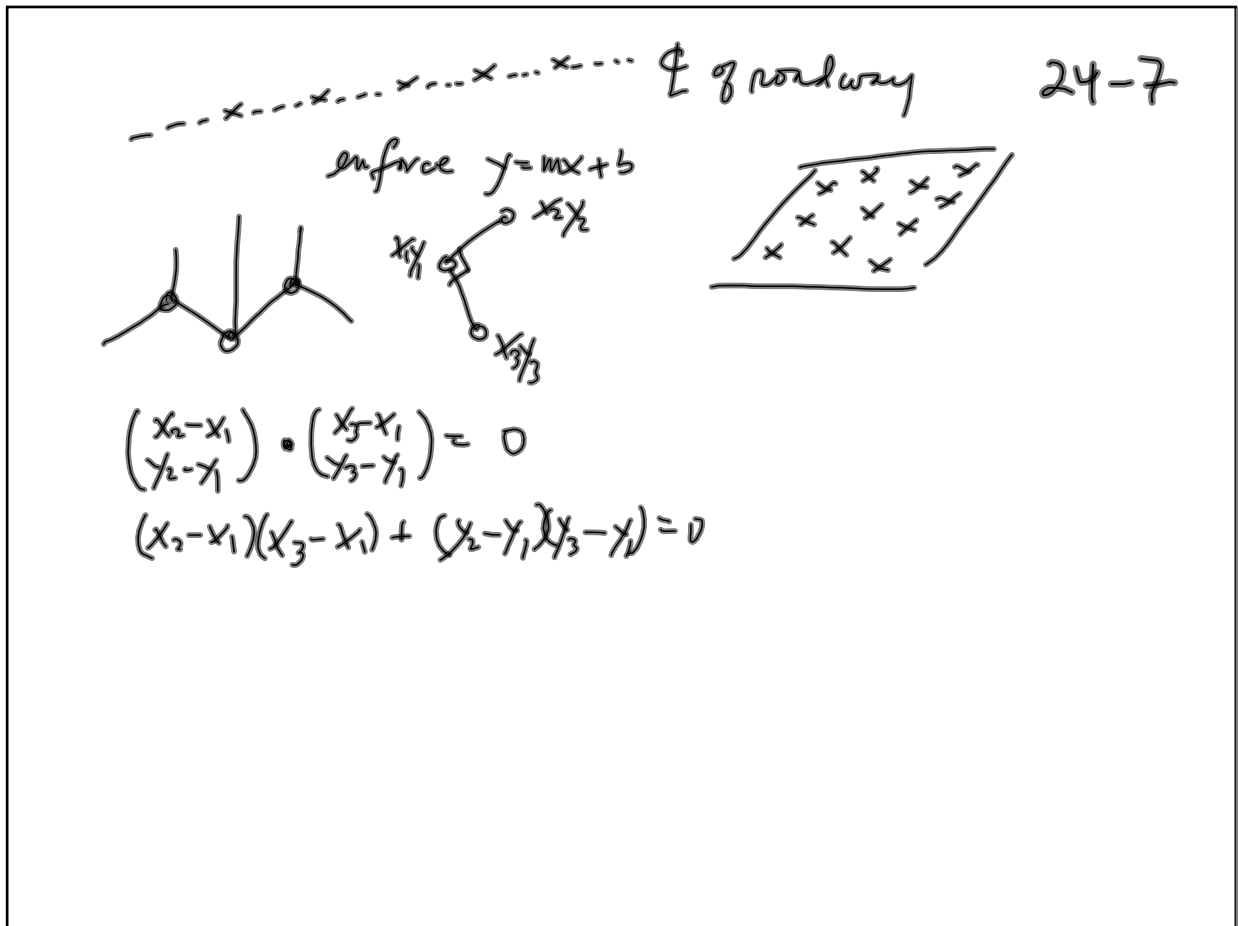 ℄ of roadway 24-7
enforce y=mx+b
x₂y₂
x₁y₁
x₃y₃
(x₂-x₁ y₂-y₁) • (x₃-x₁ y₃-y₁) = 0
(x₂-x₁)(x₃-x₁) + (y₂-y₁)(y₃-y₁) = 0